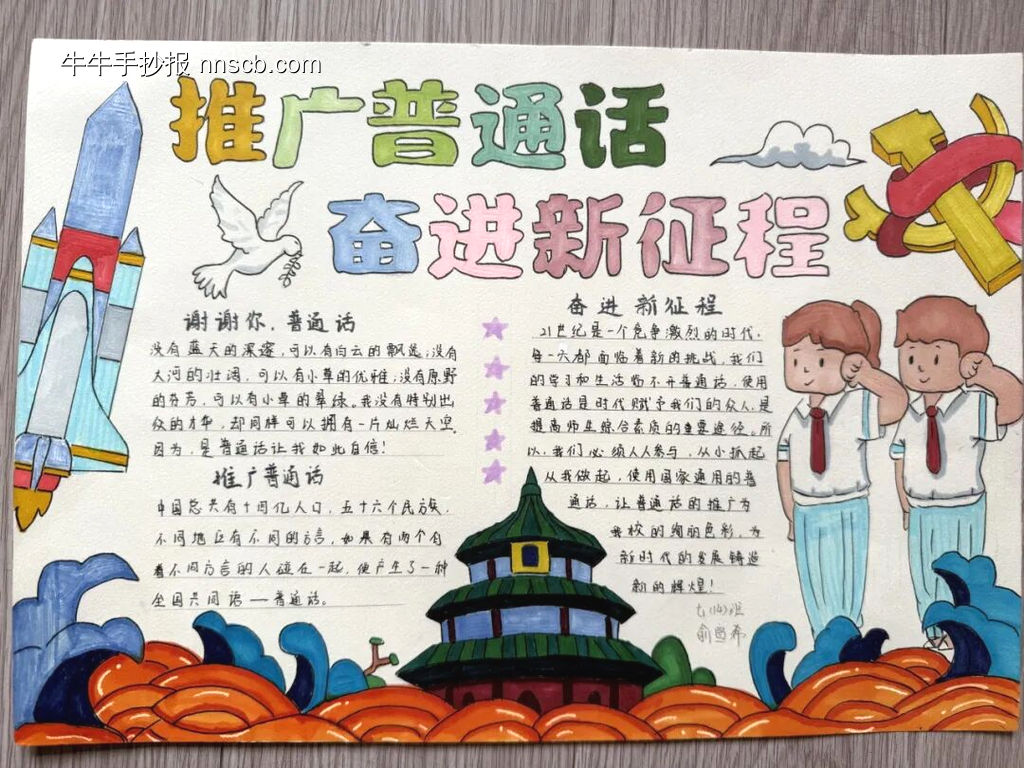 牛牛手抄报 nnscb.com
推广普通话
奋进新征程
谢谢你，普通话
没有蓝天的深邃，可以有白云的飘逸；没有
大河的壮阔，可以有小草的优雅；没有原野
的芬芳，可以有小草的翠绿。我没有特别出
众的才华，却同样可以拥有一片灿烂天空。
因为，是普通话让我如此自信！
推广普通话
中国总共有十四亿人口，五十六个民族，
不同地区有不同的方言，如果有两个有
着不同方言的人碰在一起，便产生了一种
全国共同语——普通话。
奋进新征程
21世纪是一个竞争激烈的时代，
每一六都面临着新的挑战，我们
的学习和生活恐不开普通话，使用
普通话是时代赋予我们的众人，是
提高师生综合素质的重要途径。所
以，我们必须人人参与，从小抓起
从我做起，使用国家通用的普
通话，让普通话的推广为
我校的绚丽色彩，为
新时代的发展铸造
新的辉煌！
七(14)班